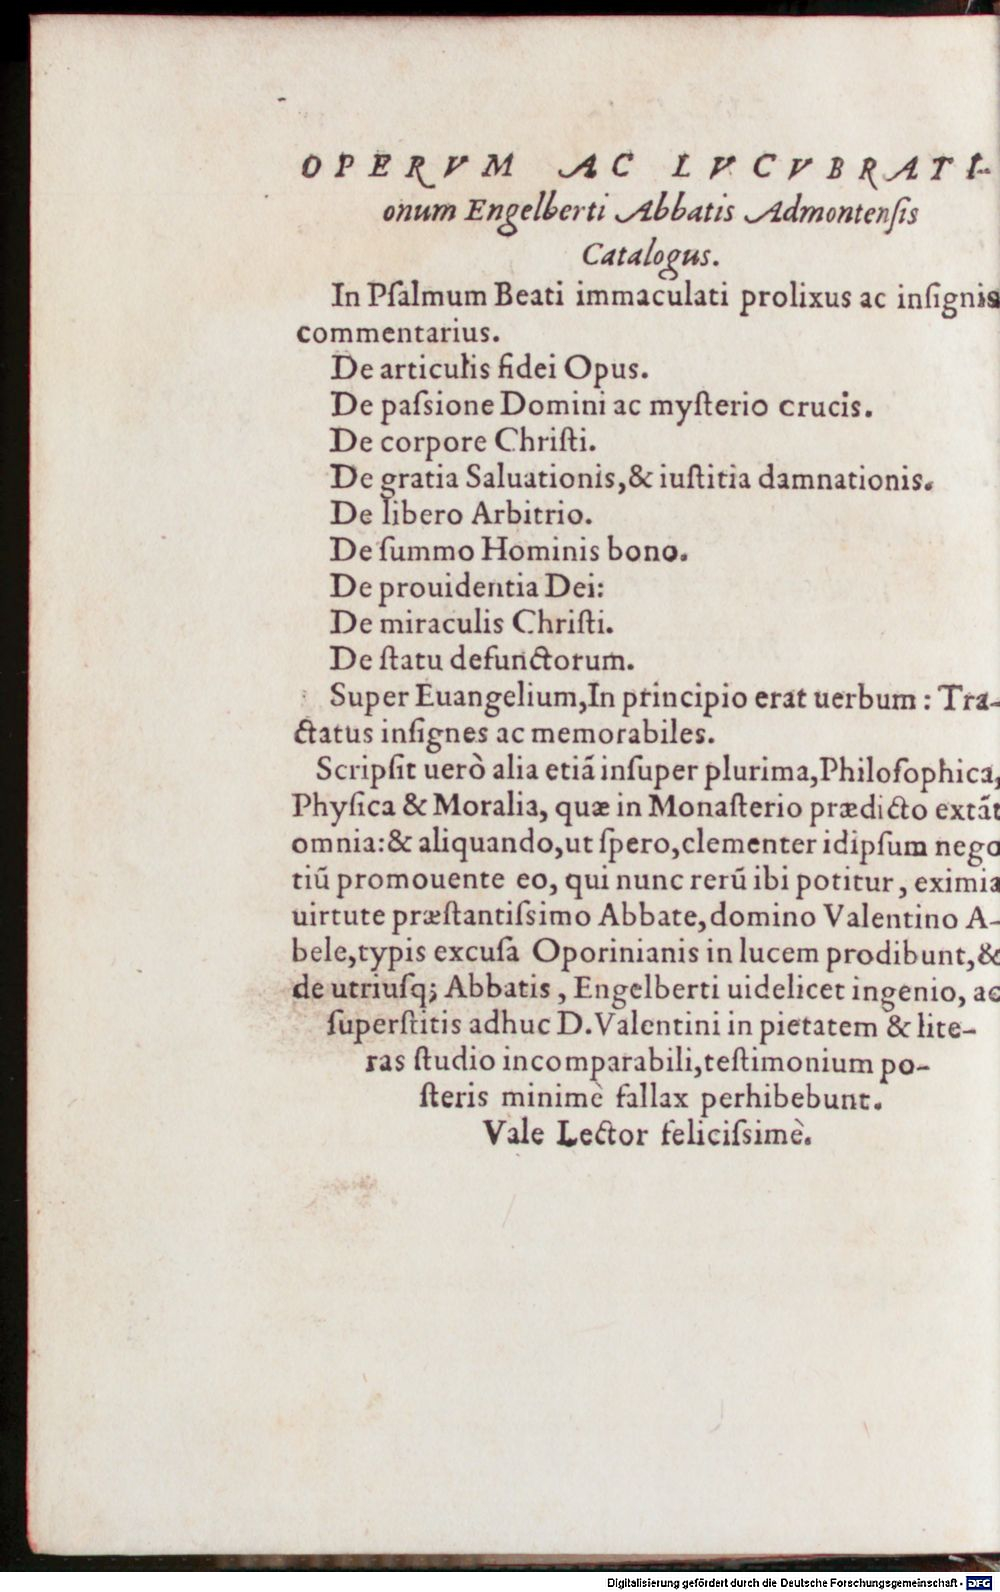 OPERVM AC LVCVBRATI-
onum Engelberti Abbatis Admontenſis
Catalogus.
In Pſalmum Beati immaculati prolixus ac inſignis
commentarius.
De articulis fidei Opus.
De paſsione Domini ac myſterio crucis.
De corpore Chriſti.
De gratia Saluationis,& iuſtitia damnationis.
De libero Arbitrio.
De ſummo Hominis bono.
De prouidentia Dei:
De miraculis Chriſti.
De ſtatu defunctorum.
Super Euangelium,In principio erat uerbum : Tra-
ctatus inſignes ac memorabiles.
Scripſit uerò alia etiã inſuper plurima,Philoſophica,
Phyſica & Moralia, quæ in Monaſterio prædicto extãt
omnia:& aliquando,ut ſpero,clementer idipſum nego
tiũ promouente eo, qui nunc rerũ ibi potitur, eximia
uirtute præſtantiſsimo Abbate,domino Valentino A-
bele,typis excuſa Oporinianis in lucem prodibunt,&
de utriuſq; Abbatis, Engelberti uidelicet ingenio, ac
ſuperſtitis adhuc D.Valentini in pietatem & lite-
ras ſtudio incomparabili,teſtimonium po-
ſteris minimè fallax perhibebunt.
Vale Lector feliciſsimè.
Digitalisierung gefördert durch die Deutsche Forschungsgemeinschaft - DFG